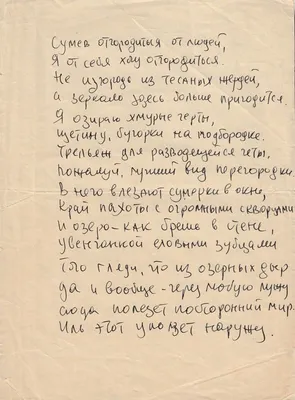 Сумев отгородиться от людей,
Я от себя хочу отгородиться.
Не изгородь из тесаных жердей,
а зеркало здесь больше пригодится.
Я озираю хмурые черты,
щетину, бугорки на подбородке.
Трельяж для разводящейся четы,
пожалуй, лучший вид перегородки.
В него влезают сумерки в окне,
край пахоты с огромными скворцами
и озеро - как брешь в стене,
увенчанной еловыми зубцами.
Того гляди, что из озерных дыр
да и вообще - через любую лужу
сюда полезет посторонний мир.
Иль этот уползет наружу.